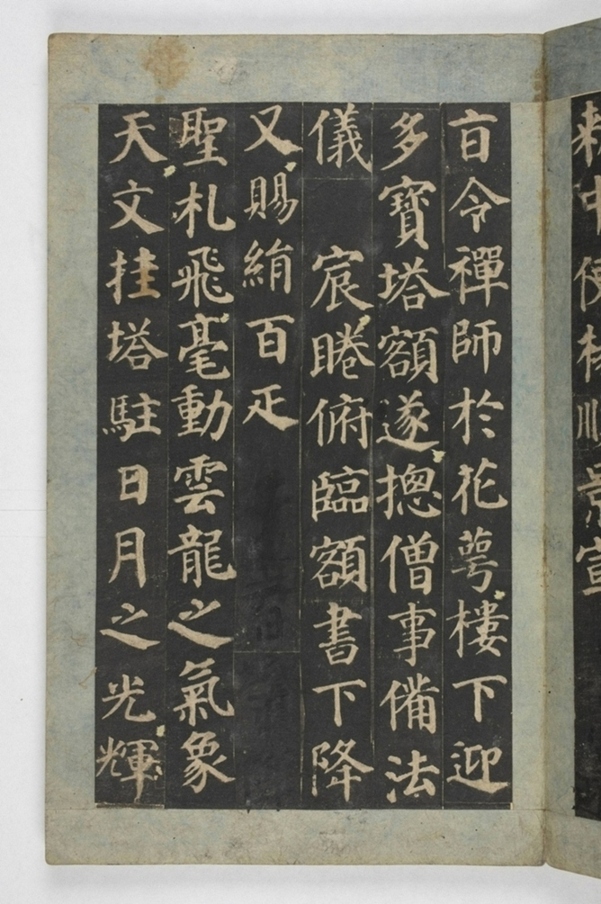 敕中使楊順景宣
㫖令禪師於花萼樓下迎
多寶塔額遂摠僧事備法
儀　宸睠俯臨額書下降
又賜絹百疋
聖札飛毫動雲龍之氣象
天文挂塔駐日月之光輝